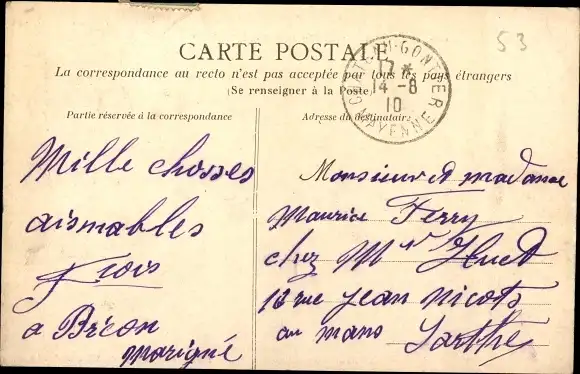 53
CARTE POSTALE
La correspondance au recto n'est pas acceptée par tous les pays étrangers
(Se renseigner à la Poste)
CHAU-GONTIER
17 *
14 -8
10
MAYENNE
Partie réservée à la correspondance
Adresse du destinataire
Mille chosses
aismables
à Bréon
marigné
Monsieur et madame
Maurice Ferry
chez Mr Huet
rue jean nicots
au mans Sarthe